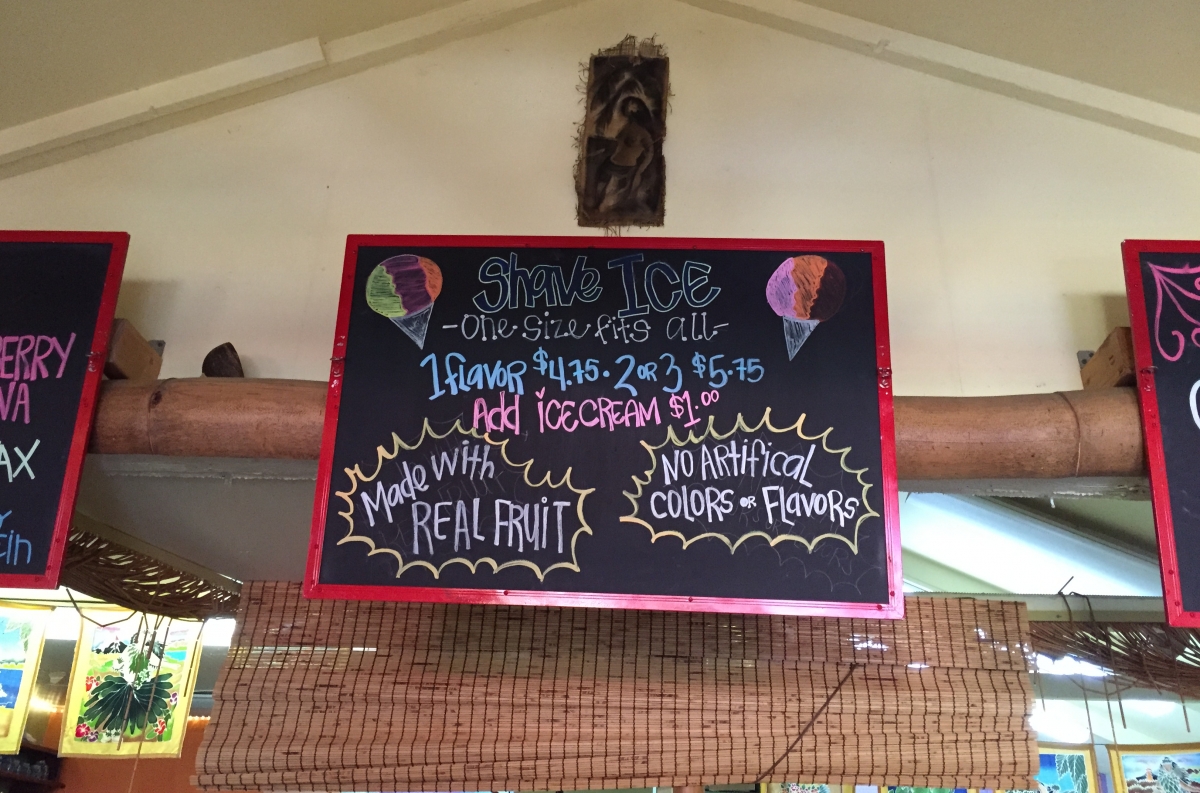 Shave ICE
-One Size fits all-
1 flavor $4.75 · 2 OR 3 $5.75
Add ICE CREAM $1.00
Made with
REAL FRUIT
NO ARtifical
COLORS OR FLavors
AX